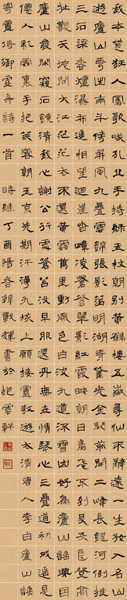 我本楚狂人鳳歌笑孔丘手持綠玉杖朝別黃鶴樓五嶽尋仙不辭遠一生好入名山
遊廬山秀出南斗傍屏風九疊雲錦張影落明湖青黛光金闕前開二峰長銀河倒挂
三石梁香爐瀑布遙相望迴崖沓嶂凌蒼蒼翠影紅霞映朝日鳥飛不到吳天長登高
壯觀天地間大江茫茫去不還黃雲萬里動風色白波九道流雪山好為廬山謠興因
廬山發閒窺石鏡清我心謝公行處蒼苔沒早服還丹無世情琴心三疊道初成遙見
僊人彩雲裏手把芙蓉朝玉京先期汗漫九垓上願接盧敖遊太清唐人李白廬山謠
寄盧侍御虛舟詩一首時維丁酉陽春韓輝書於挹雲軒